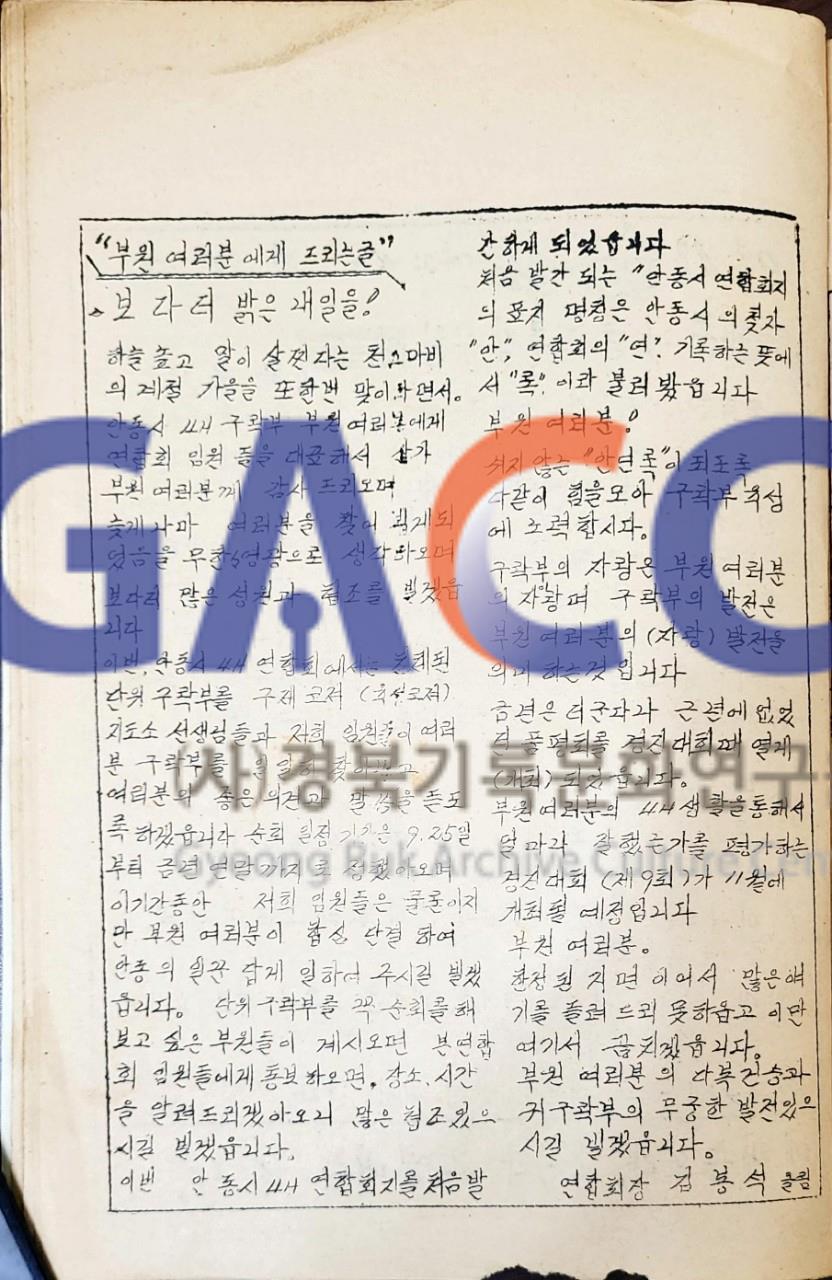 "부원 여러분에게 드리는글"
보다더 밝은 내일을!
하늘높고 말이 살찐다는 천고마비
의 계절 가을을 또한번 맞이하면서.
안동시 4H 구락부 부원여러분에게
연합회 임원들을 대표해서 삼가
부원여러분께 감사드리오며
늦게나마 여러분을 찾아 뵙게되
었음을 무한한 영광으로 생각하오며
보다더 많은 성원과 협조를 빌겠읍
니다
이번, 안동시 4H 연합회에서는 침체된
단위구락부를 구제코저 (육성코저)
지도소 선생님들과 저희 임원들이 여러
분 구락부를 일일히
여러분의 좋은 의견과 말씀을 듣도
록하겠읍니다 순회 일정 기간은 9.25일
부터 금년 연말까지로 정했아오며
이기간동안 저희 임원들은 물론이지
만 부원 여러분이 합심 단결 하여
안동의 일꾼 답게 일하여 주시길 빌겠
읍니다. 단위구락부를 꼭 순회를 해
보고 싶은 부원들이 계시오면 본연합
회 임원들에게 통보하오면, 장소, 시간
을 알려드리겠아오니 많은 협조있으
시길 빌겠읍니다.
이번 안동시4H 연합회지를 처음발
간하게 되었읍니다
처음 발간 되는 "안동시연합회지
의 표지 명칭은 안동시의 첫자
"안", 연합회의 "연". 기록하는 뜻에
서 "록". 이라 불러봤읍니다
부원 여러분!
쉬지 않는 "안연록"이 되도록
다같이 힘을모아 구락부 육성
에 노력합시다.
구락부의 자랑은 부원여러분
의 자랑이며 구락부의 발전은
부원여러분의 (자랑) 발전을
의미하는것 입니다
금년은 더군다나 근년에 없었
던 품평회를 경진대회때 열게
(개최) 되었읍니다.
부원여러분의 4H생활을통해서
얼마나 잘했는가를 평가하는
경진대회 (제9회)가 11월에
개최될 예정입니다
부원 여러분.
한정된 지면 이여서 많은얘
기를 들려 드리 못하옵고 이만
여기서 끝치겠읍니다.
부원 여러분의 다복건승과
귀구락부의 무궁한 발전있으
시길 빌겠읍니다.
연합회장 김봉석 올림
GACC
(사)경북기록문화연구
Gyeong Buk Archive Culture Cen